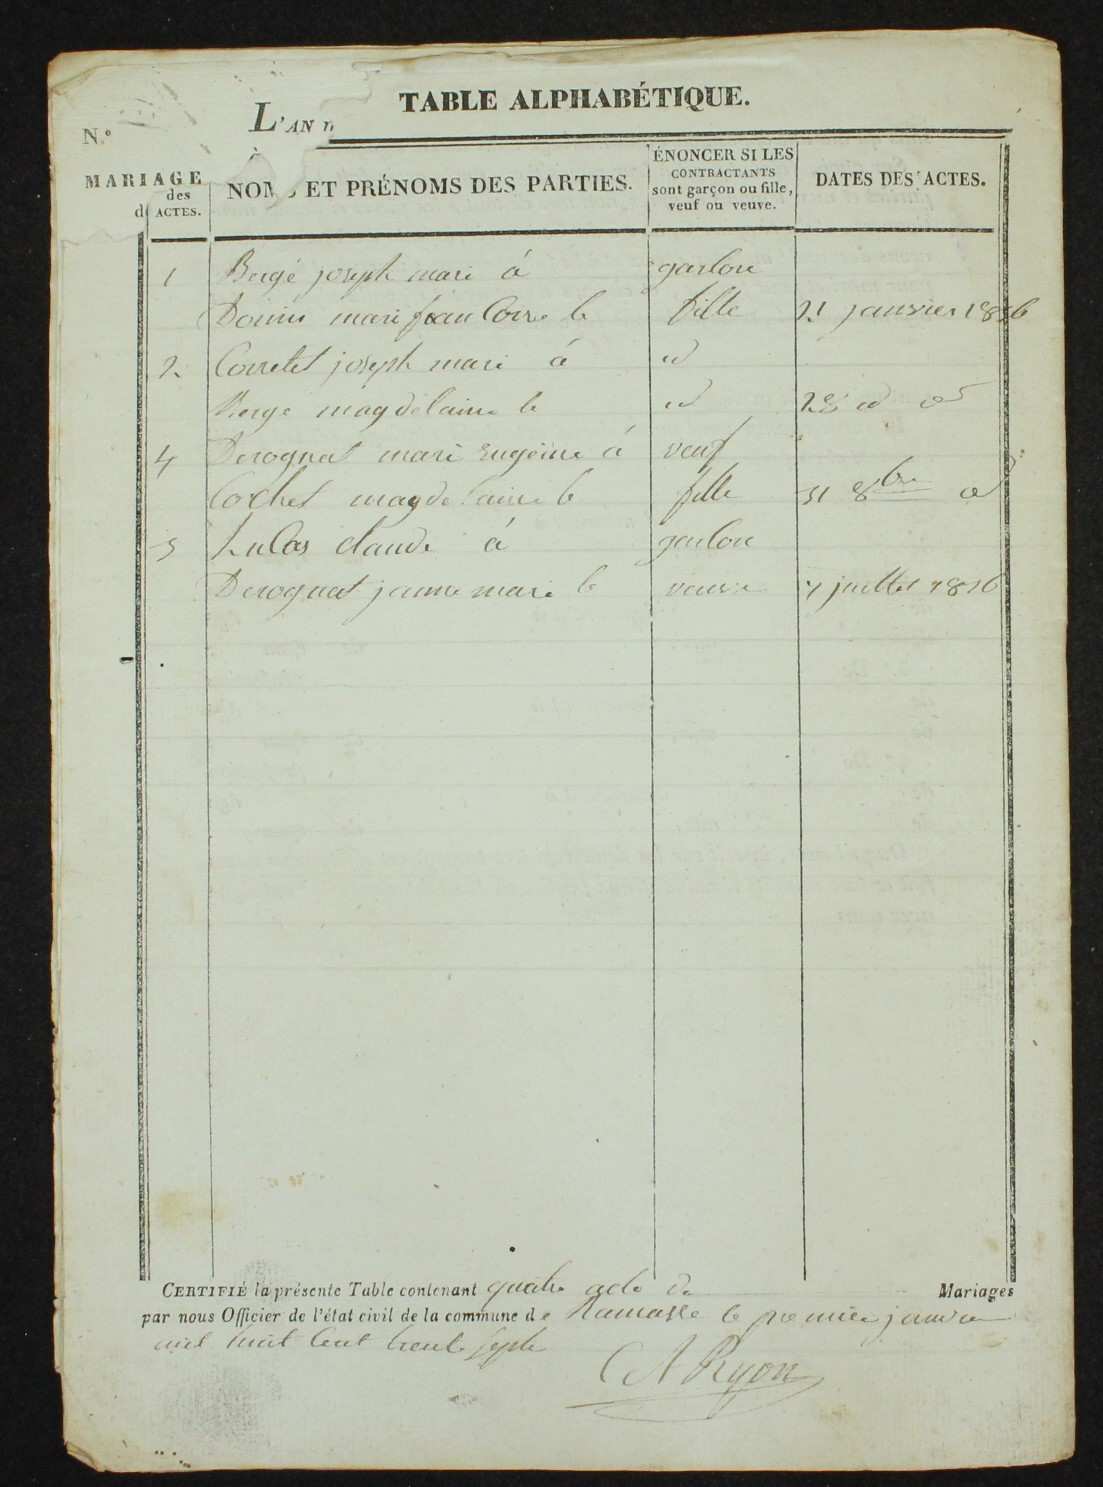 TABLE ALPHABÉTIQUE.
N.º L'AN
MARIAGE
des
ACTES.
NOMS ET PRÉNOMS DES PARTIES.
ÉNONCER SI LES
CONTRACTANTS
sont garçon ou fille,
veuf ou veuve.
DATES DES ACTES.
1 Bergé joseph marie á garson
marie le fille 21 janvier 1836
2 Corretet joseph marie á id
Berge magdelaine le id 28 id id
4 Derognat marie Eugéine á veuf
Cochet magdelaine le fille 31 8bre id
3 Lucas claude á garson
Derognat janne marie le veuve 7 juillet 1836
CERTIFIÉ la présente Table contenant quatre acte de Mariages
par nous Officier de l'état civil de la commune de Ramasse le premier janvier
mil huit cent trente septe